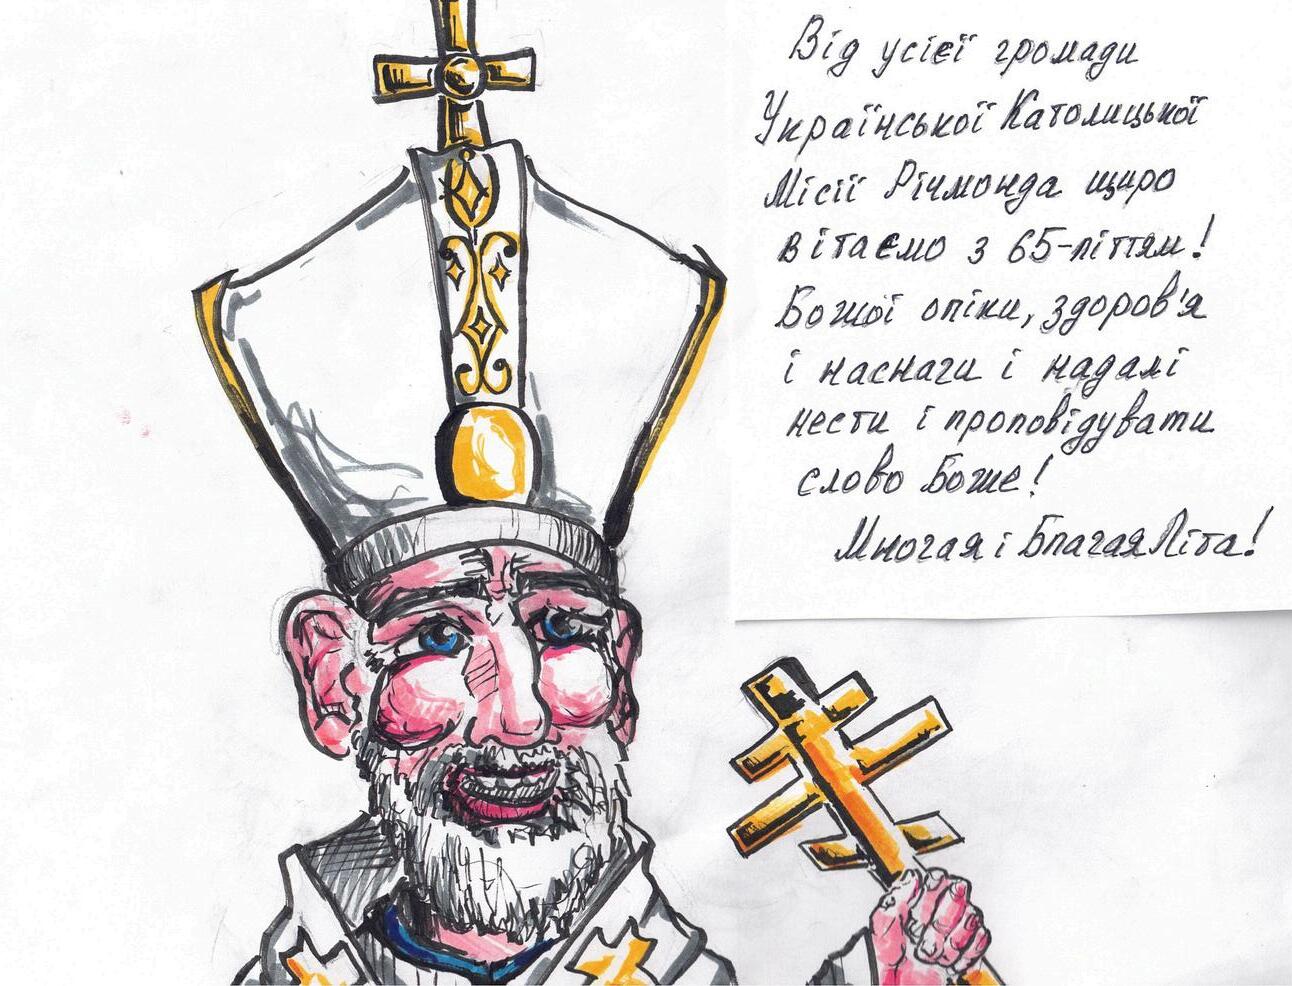 Від усієї громади
Української Католицької
Місії Річмонда щиро
вітаємо з 65-літтям!
Божої опіки, здоров'я
і наснаги і надалі
нести і проповідувати
слово Боже!
Многая і Благая Літа!